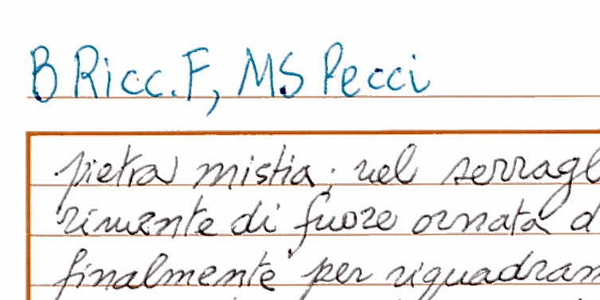 B Ricc. F, MS Pecci
pietra mistia; nel serragl
rimente di fuore ornata d
finalmente per riquadram